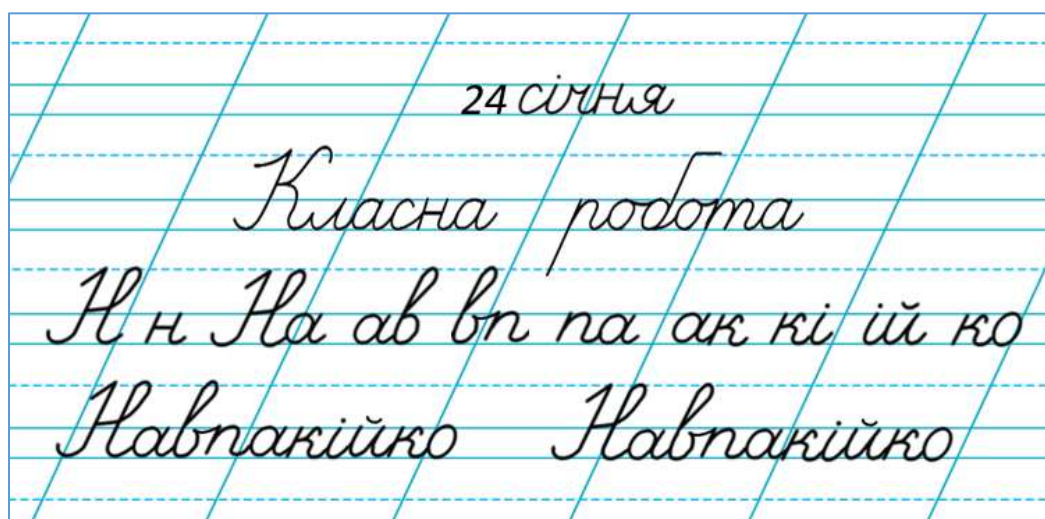 24 січня
Класна робота
Н н На ав вп па ак кі ій ко
Навпакійко Навпакійко